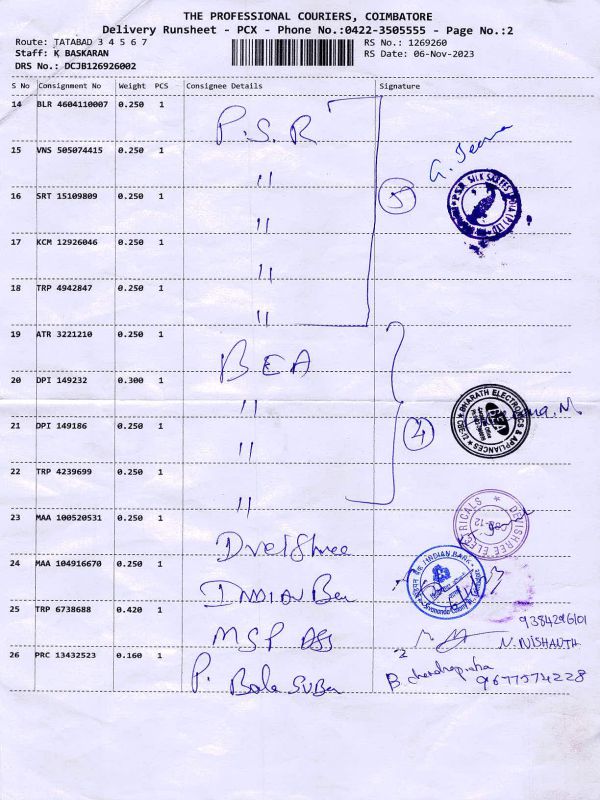 THE PROFESSIONAL COURIERS, COIMBATORE
Delivery Runsheet - PCX - Phone No.:0422-3505555 - Page No.:2
Route: TATABAD 3 4 5 6 7
RS No.: 1269260
Staff: K BASKARAN
RS Date: 06-Nov-2023
DRS No.: DCJB126926002
S No Consignment No Weight PCS Consignee Details Signature
14 BLR 4604110007 0.250 1 P.S.R
15 VNS 505074415 0.250 1 " G. Jeena
16 SRT 15109809 0.250 1 " 5
P.S.R SILK SAREES INDIA (P) LTD
17 KCM 12926046 0.250 1 "
18 TRP 4942847 0.250 1 "
19 ATR 3221210 0.250 1 BEA
20 DPI 149232 0.300 1 "
21 DPI 149186 0.250 1 " 4
BHARATH ELECTRONICS & APPLIANCES
BEA
22 TRP 4239699 0.250 1 "
23 MAA 100520531 0.250 1
DEVISHREE ELECTRICALS
24 MAA 104916670 0.250 1 INDIAN Ban
INDIAN BANK
25 TRP 6738688 0.420 1 MSP
N. NISHANTH
26 PRC 13432523 0.160 1 P. Bala SUBa
9677574228